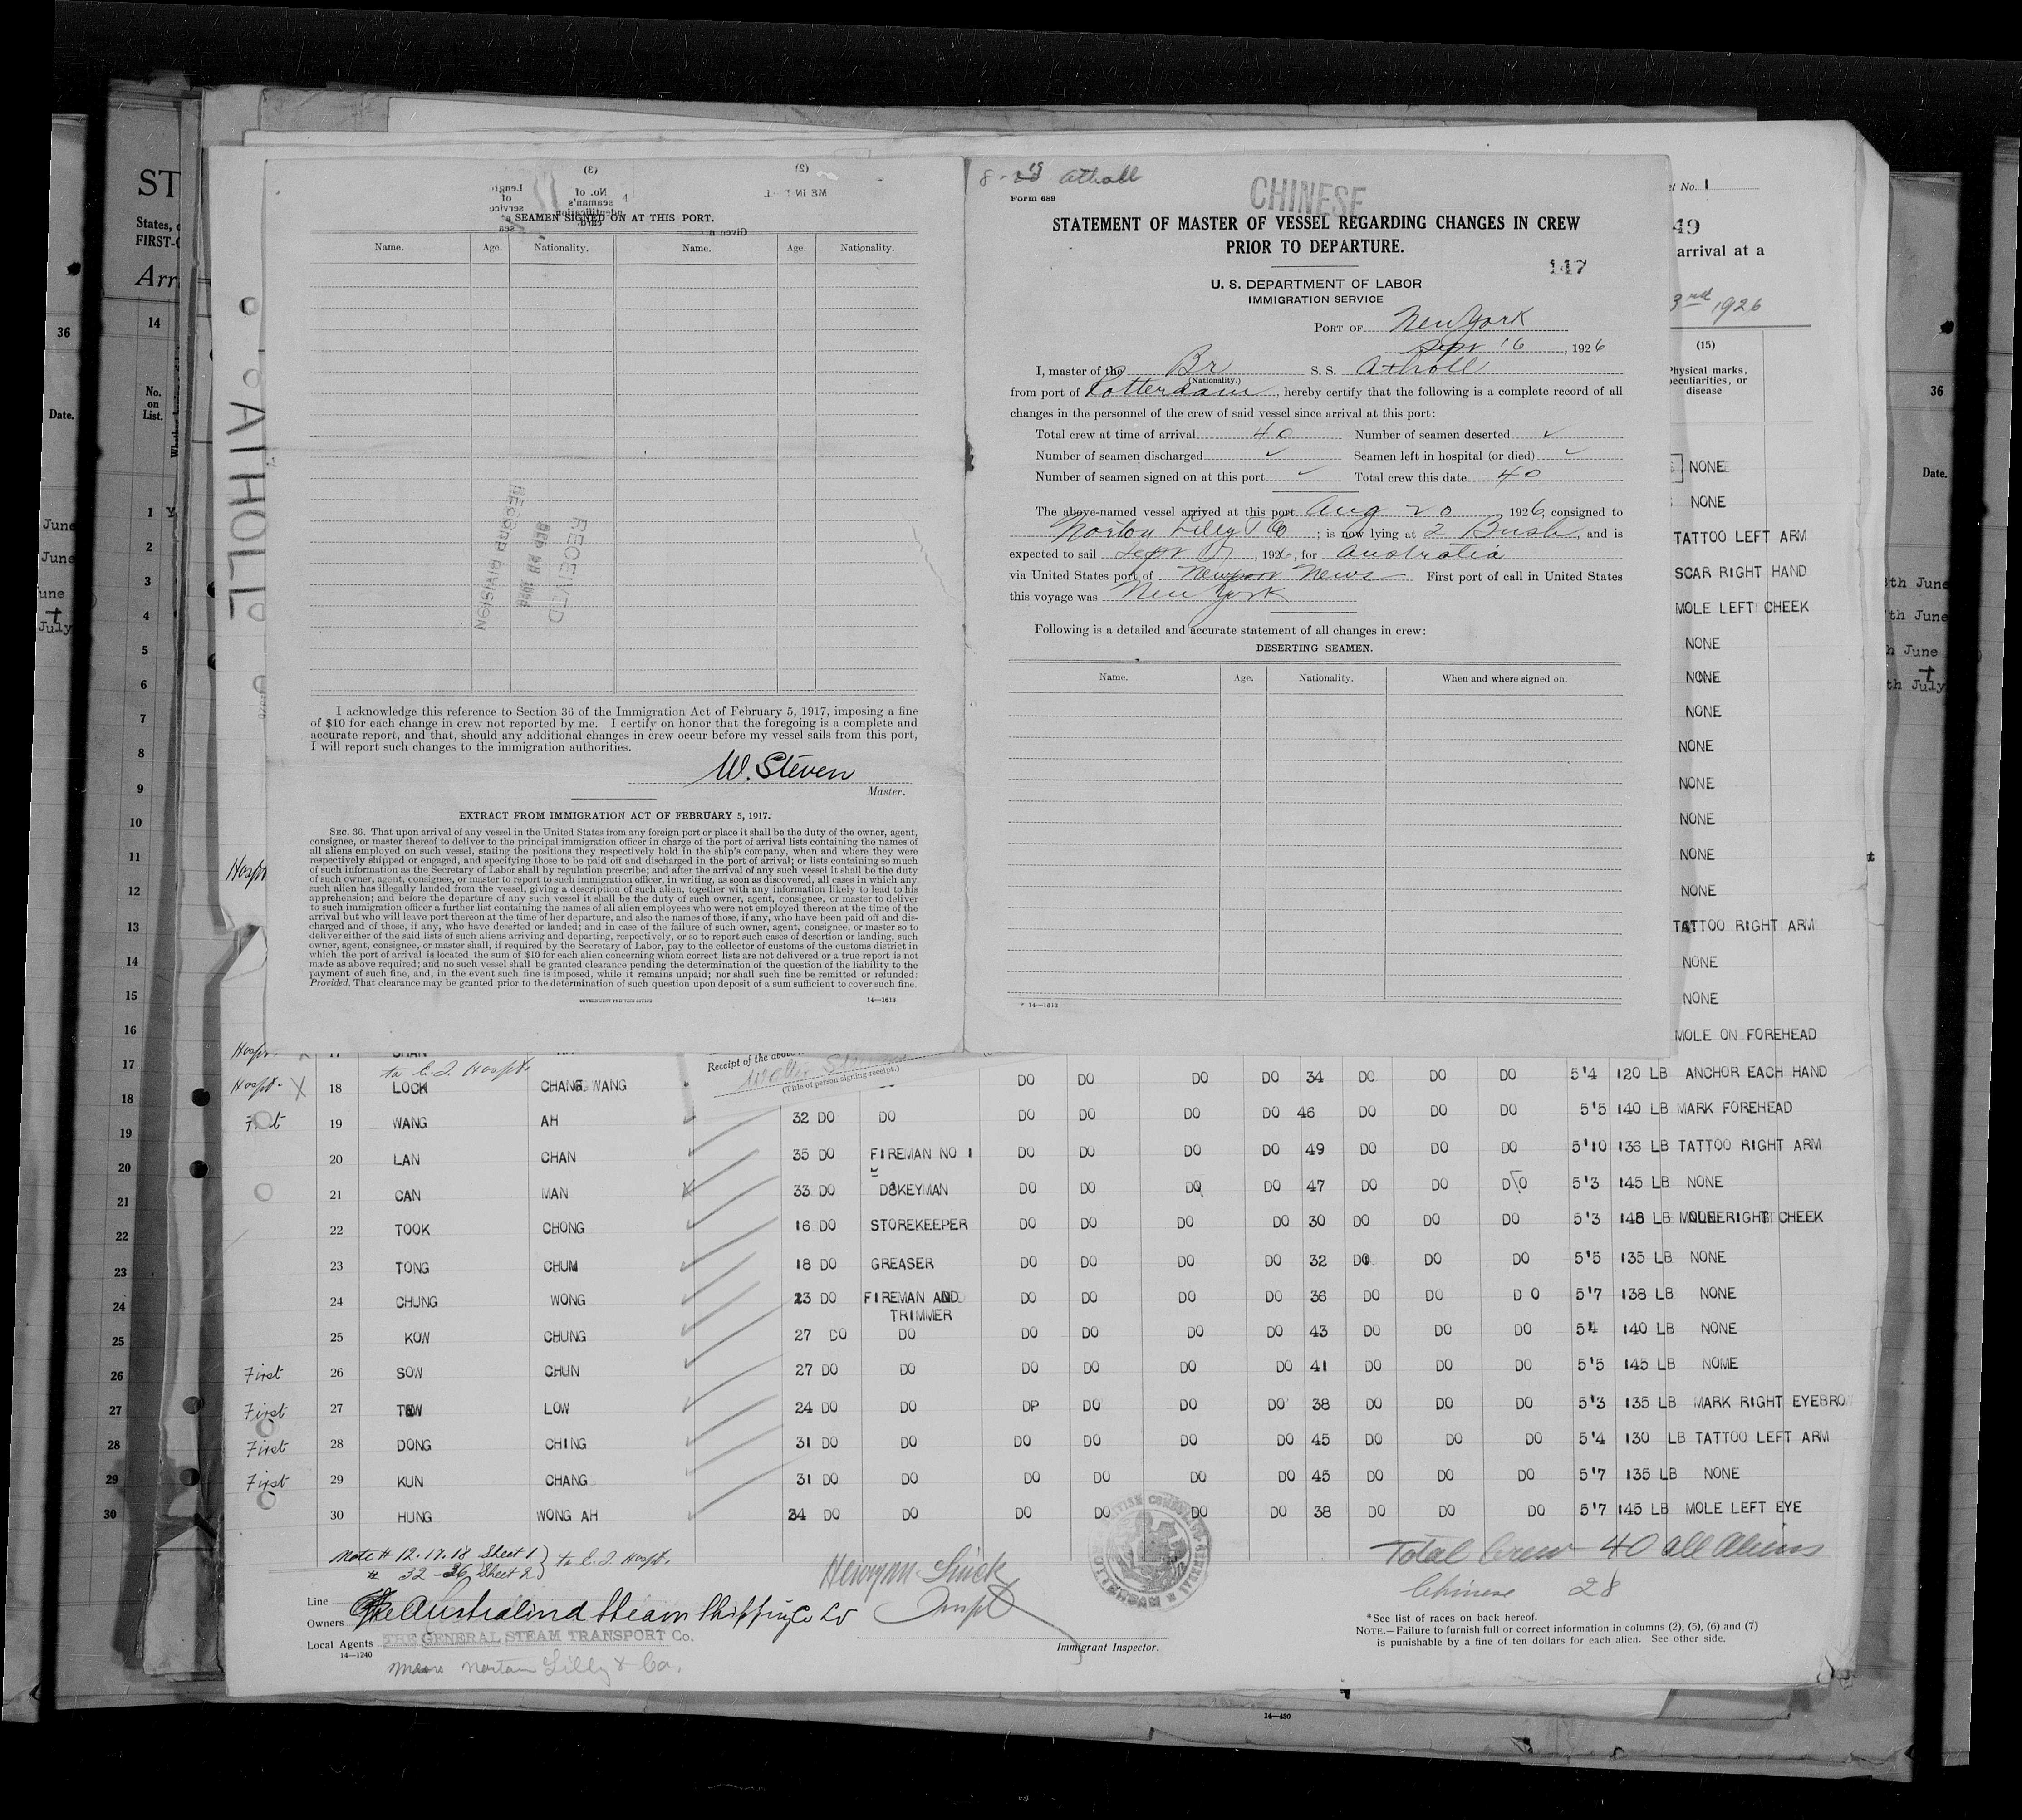 SEAMEN SIGNED ON AT THIS PORT.
Name. Age. Nationality. Name. Age. Nationality.
RECEIVED
RECORD DIVISION
I acknowledge this reference to Section 36 of the Immigration Act of February 5, 1917, imposing a fine
of $10 for each change in crew not reported by me. I certify on honor that the foregoing is a complete and
accurate report, and that, should any additional changes in crew occur before my vessel sails from this port,
I will report such changes to the immigration authorities.
W. Steven
Master.
EXTRACT FROM IMMIGRATION ACT OF FEBRUARY 5, 1917.
SEC. 36. That upon arrival of any vessel in the United States from any foreign port or place it shall be the duty of the owner, agent,
consignee, or master thereof to deliver to the principal immigration officer in charge of the port of arrival lists containing the names of
all aliens employed on such vessel, stating the positions they respectively hold in the ship's company, when and where they were
respectively shipped or engaged, and specifying those to be paid off and discharged in the port of arrival; or lists containing so much
of such information as the Secretary of Labor shall by regulation prescribe; and after the arrival of any such vessel it shall be the duty
of such owner, agent, consignee, or master to report to such immigration officer, in writing, as soon as discovered, all cases in which any
such alien has illegally landed from the vessel, giving a description of such alien, together with any information likely to lead to his
apprehension; and before the departure of any such vessel it shall be the duty of such owner, agent, consignee, or master to deliver
to such immigration officer a further list containing the names of all alien employees who were not employed thereon at the time of the
arrival but who will leave port thereon at the time of her departure, and also the names of those, if any, who have been paid off and dis-
charged and of those, if any, who have deserted or landed; and in case of the failure of such owner, agent, consignee, or master so to
deliver either of the said lists of such aliens arriving and departing, respectively, or so to report such cases of desertion or landing, such
owner, agent, consignee, or master shall, if required by the Secretary of Labor, pay to the collector of customs of the customs district in
which the port of arrival is located the sum of $10 for each alien concerning whom correct lists are not delivered or a true report is not
made as above required; and no such vessel shall be granted clearance pending the determination of the question of the liability to the
payment of such fine, and, in the event such fine is imposed, while it remains unpaid; nor shall such fine be remitted or refunded:
Provided, That clearance may be granted prior to the determination of such question upon deposit of a sum sufficient to cover such fine.
GOVERNMENT PRINTING OFFICE 14—1613
Atholl
Form 689
CHINESE
STATEMENT OF MASTER OF VESSEL REGARDING CHANGES IN CREW
PRIOR TO DEPARTURE.
147
U. S. DEPARTMENT OF LABOR
IMMIGRATION SERVICE
PORT OF New York
Sept 16, 1926
I, master of the Br S. S. Atholl
(Nationality.)
from port of Rotterdam, hereby certify that the following is a complete record of all
changes in the personnel of the crew of said vessel since arrival at this port:
Total crew at time of arrival 40 Number of seamen deserted ✓
Number of seamen discharged ✓ Seamen left in hospital (or died) ✓
Number of seamen signed on at this port ✓ Total crew this date 40
The above-named vessel arrived at this port Aug 20 1926, consigned to
Norton Lilly & Co; is now lying at 2 Bush, and is
expected to sail Sept 17, 1926, for Australia
via United States port of Newport News First port of call in United States
this voyage was New York
Following is a detailed and accurate statement of all changes in crew:
DESERTING SEAMEN.
Name. Age. Nationality. When and where signed on.
14—1613
ATHOLL
ST
States,
FIRST-
Arr
14
No.
on
List.
36
Date.
June
June
June
July
1
2
3
4
5
6
7
8
9
10
11
12
13
14
15
16
17
18
19
20
21
22
23
24
25
26
27
28
29
30
et No. 1
49
arrival at a
3rd 1926
(15)
Physical marks,
peculiarities, or
disease
NONE
NONE
TATTOO LEFT ARM
SCAR RIGHT HAND
MOLE LEFT CHEEK
NONE
NONE
NONE
NONE
NONE
NONE
NONE
NONE
TATTOO RIGHT ARM
NONE
NONE
MOLE ON FOREHEAD
36
Date.
June
th June
June
th July
Receipt of the above
(Title of person signing receipt.)
to E. I. Hospt.
Hospt. X 18 LOCK CHANG WANG DO DO DO DO 34 DO DO DO 5'4 120 LB ANCHOR EACH HAND
First 19 WANG AH 32 DO DO DO DO DO DO 46 DO DO DO 5'5 140 LB MARK FOREHEAD
20 LAN CHAN 35 DO FIREMAN NO 1 DO DO DO DO 49 DO DO DO 5'10 136 LB TATTOO RIGHT ARM
21 CAN MAN 33 DO DOKEYMAN DO DO DO DO 47 DO DO DO 5'3 145 LB NONE
22 TOOK CHONG 16 DO STOREKEEPER DO DO DO DO 30 DO DO DO 5'3 148 LB MOLE RIGHT CHEEK
23 TONG CHUM 18 DO GREASER DO DO DO DO 32 DO DO DO 5'5 135 LB NONE
24 CHUNG WONG 23 DO FIREMAN AND TRIMMER DO DO DO DO 36 DO DO DO 5'7 138 LB NONE
25 KOW CHUNG 27 DO DO DO DO DO DO 43 DO DO DO 5'4 140 LB NONE
First 26 SOW CHUN 27 DO DO DO DO DO DO 41 DO DO DO 5'5 145 LB NOME
First 27 TEW LOW 24 DO DO DP DO DO DO 38 DO DO DO 5'3 135 LB MARK RIGHT EYEBRO
First 28 DONG CHING 31 DO DO DO DO DO DO 45 DO DO DO 5'4 130 LB TATTOO LEFT ARM
First 29 KUN CHANG 31 DO DO DO DO DO DO 45 DO DO DO 5'7 135 LB NONE
30 HUNG WONG AH 24 DO DO DO DO DO DO 38 DO DO DO 5'7 145 LB MOLE LEFT EYE
Note # 12. 17. 18 Sheet 1 } to E. I. Hospt.
# 32-36, Sheet 2
Total Crew 40 all Aliens
Chinese 28
Line
Owners The Australind Steam Shipping Co Ld
Local Agents THE GENERAL STEAM TRANSPORT Co.
14—1240
Norton Lilly & Co.
Immigrant Inspector.
*See list of races on back hereof.
NOTE.—Failure to furnish full or correct information in columns (2), (5), (6) and (7)
is punishable by a fine of ten dollars for each alien. See other side.
14—430